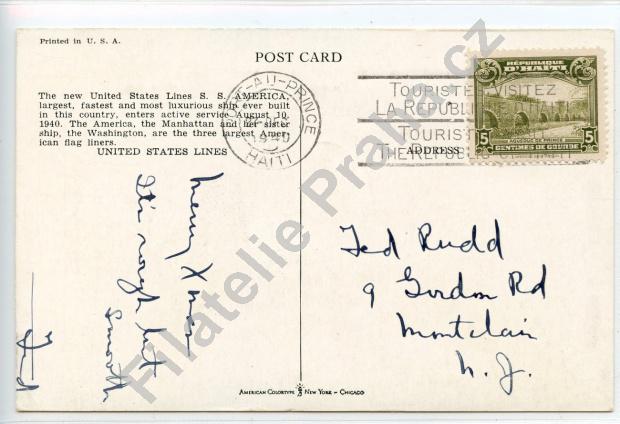 Printed in U. S. A.
POST CARD
The new United States Lines S. S. AMERICA,
largest, fastest and most luxurious ship ever built
in this country, enters active service August 10,
1940. The America, the Manhattan and her sister
ship, the Washington, are the three largest Amer-
ican flag liners.
UNITED STATES LINES
PORT-AU-PRINCE
1940
HAITI
TOURISTE VISITEZ
LA REPUBLIQUE
TOURIST
THE REPUBLIC OF HAITI
RÉPUBLIQUE
D'HAITI
5
5
CENTIMES DE GOURDE
ADDRESS
Merry Xmas
It's rough but
smooth
Ted Rudd
9 Gordon Rd
Montclair
N. J.
AMERICAN COLORTYPE NEW YORK – CHICAGO
Filatelie Praha.cz